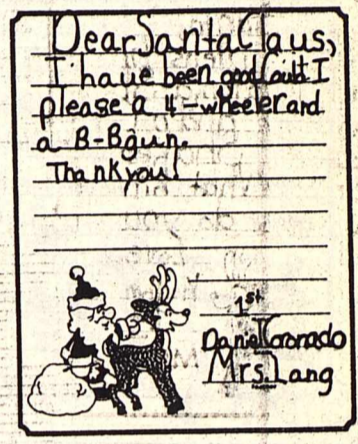 Dear Santa Claus,
I have been good Could I
please a 4-wheeler and
a B-B gun.
Thank you!
1st
Daniel Coronado
Mrs. Lang